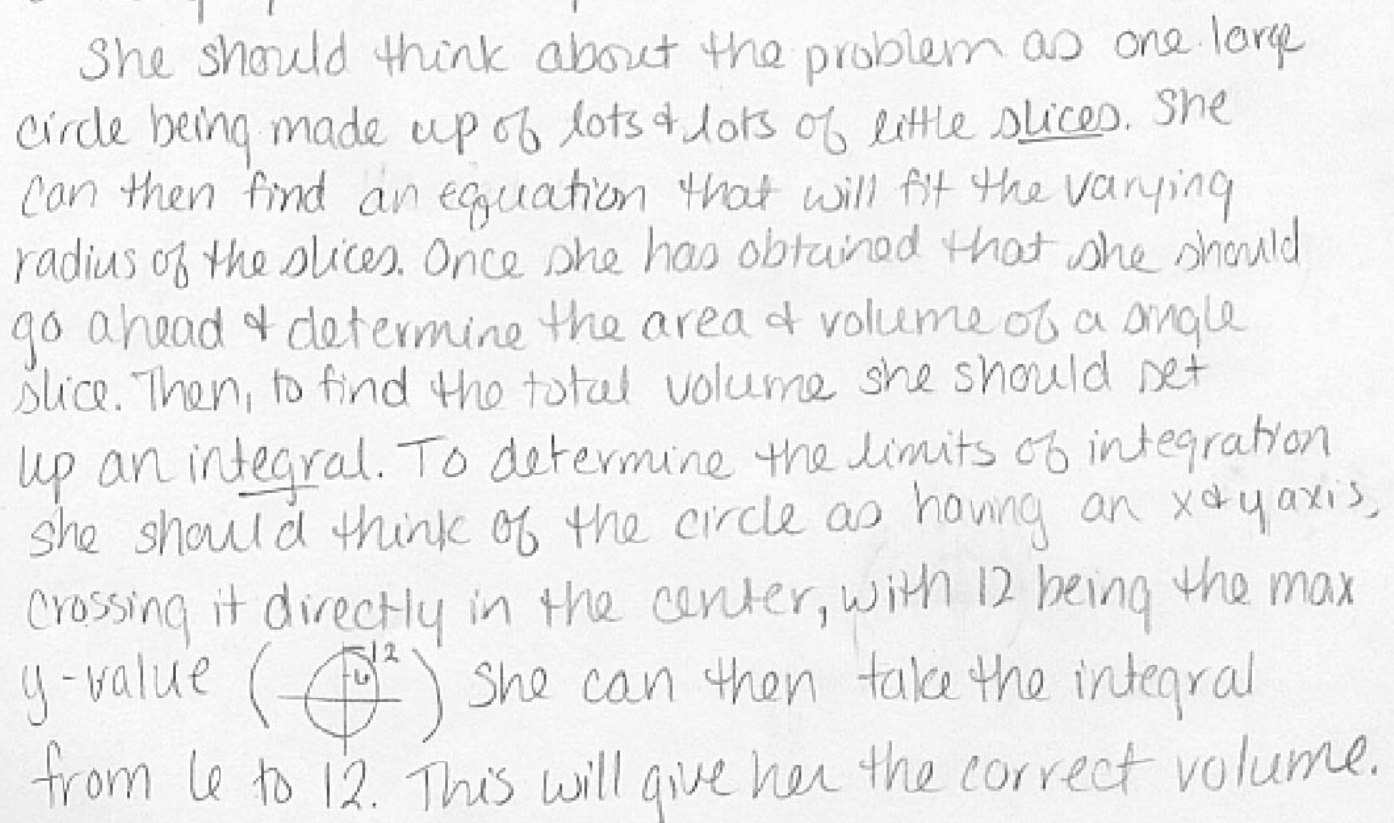 She should think about the problem as one large
circle being made up of lots & lots of little slices. She
can then find an equation that will fit the varying
radius of the slices. Once she has obtained that she should
go ahead & determine the area & volume of a single
slice. Then, to find the total volume she should set
up an integral. To determine the limits of integration
she should think of the circle as having an x & y axis,
crossing it directly in the center, with 12 being the max
y-value ( 12 6 ) She can then take the integral
from 6 to 12. This will give her the correct volume.